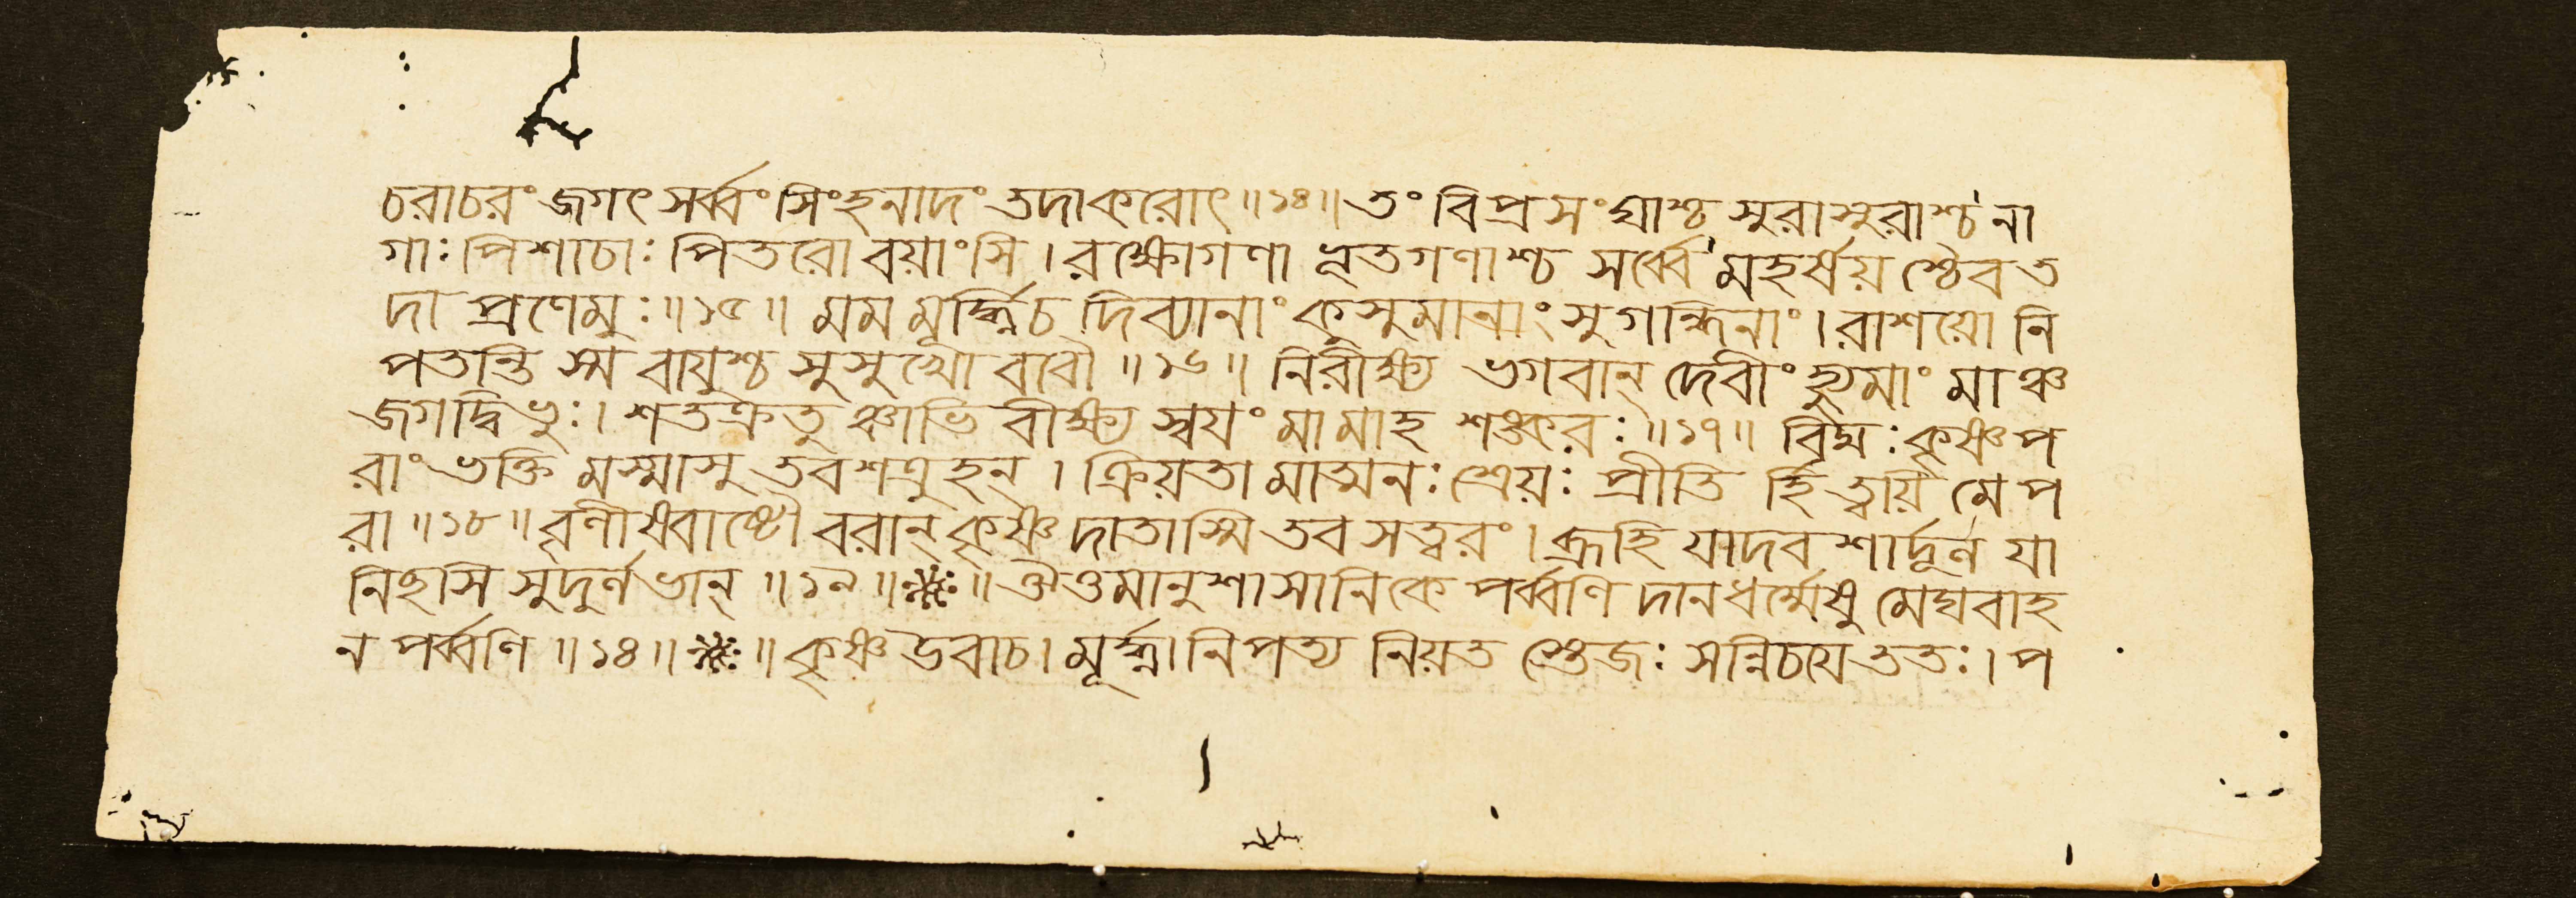 চরাচরং জগৎ সর্ব্বং সিংহনাদং তদাকরোৎ॥১৪॥তং বিপ্রসংঘাশ্চ সুরাসুরাশ্চ না
গাঃ পিশাচাঃ পিতরো বয়াংসি। রক্ষোগণা ভূতগণাশ্চ সর্ব্বে মহর্ষয়শ্চৈব ত
দা প্রণেমুঃ॥১৫॥ মম মূর্দ্ধ্নি চ দিব্যানাং কুসুমানাং সুগন্ধিনাং। রাশয়ো নি
পতন্তি স্ম বায়ুশ্চ সুসুখো ববৌ॥১৬॥ নিরীক্ষ্য ভগবান্ দেবীং হ্যুমাং মাঞ্চ
জগদ্বিভুঃ। শতক্রতুঞ্চাভিবীক্ষ্য স্বয়ং মামাহ শঙ্করঃ॥১৭॥ বিদ্মঃ কৃষ্ণ প
রাং ভক্তিমস্মাসু তব শত্রুহন্। ক্রিয়তামাত্মনঃ শ্রেয়ঃ প্রীতির্হি ত্বয়ি মে প
রা॥১৮॥ বৃণীষ্বাষ্টৌ বরান্ কৃষ্ণ দাতাস্মি তব সত্বরং। ব্রূহি যাদবশার্দূল যা
নিছসি সুদুর্লভান্॥১৯॥❊ঃ॥ ঔত্তমানুশাসানিকে পর্ব্বণি দানধর্ম্মেষু মেঘবাহ
ন পর্ব্বণি॥১৪॥❊ঃ॥ কৃষ্ণ উবাচ। মূর্দ্ধ্না নিপত্য নিয়তস্তেজঃ সন্নিচয়ে ততঃ। প